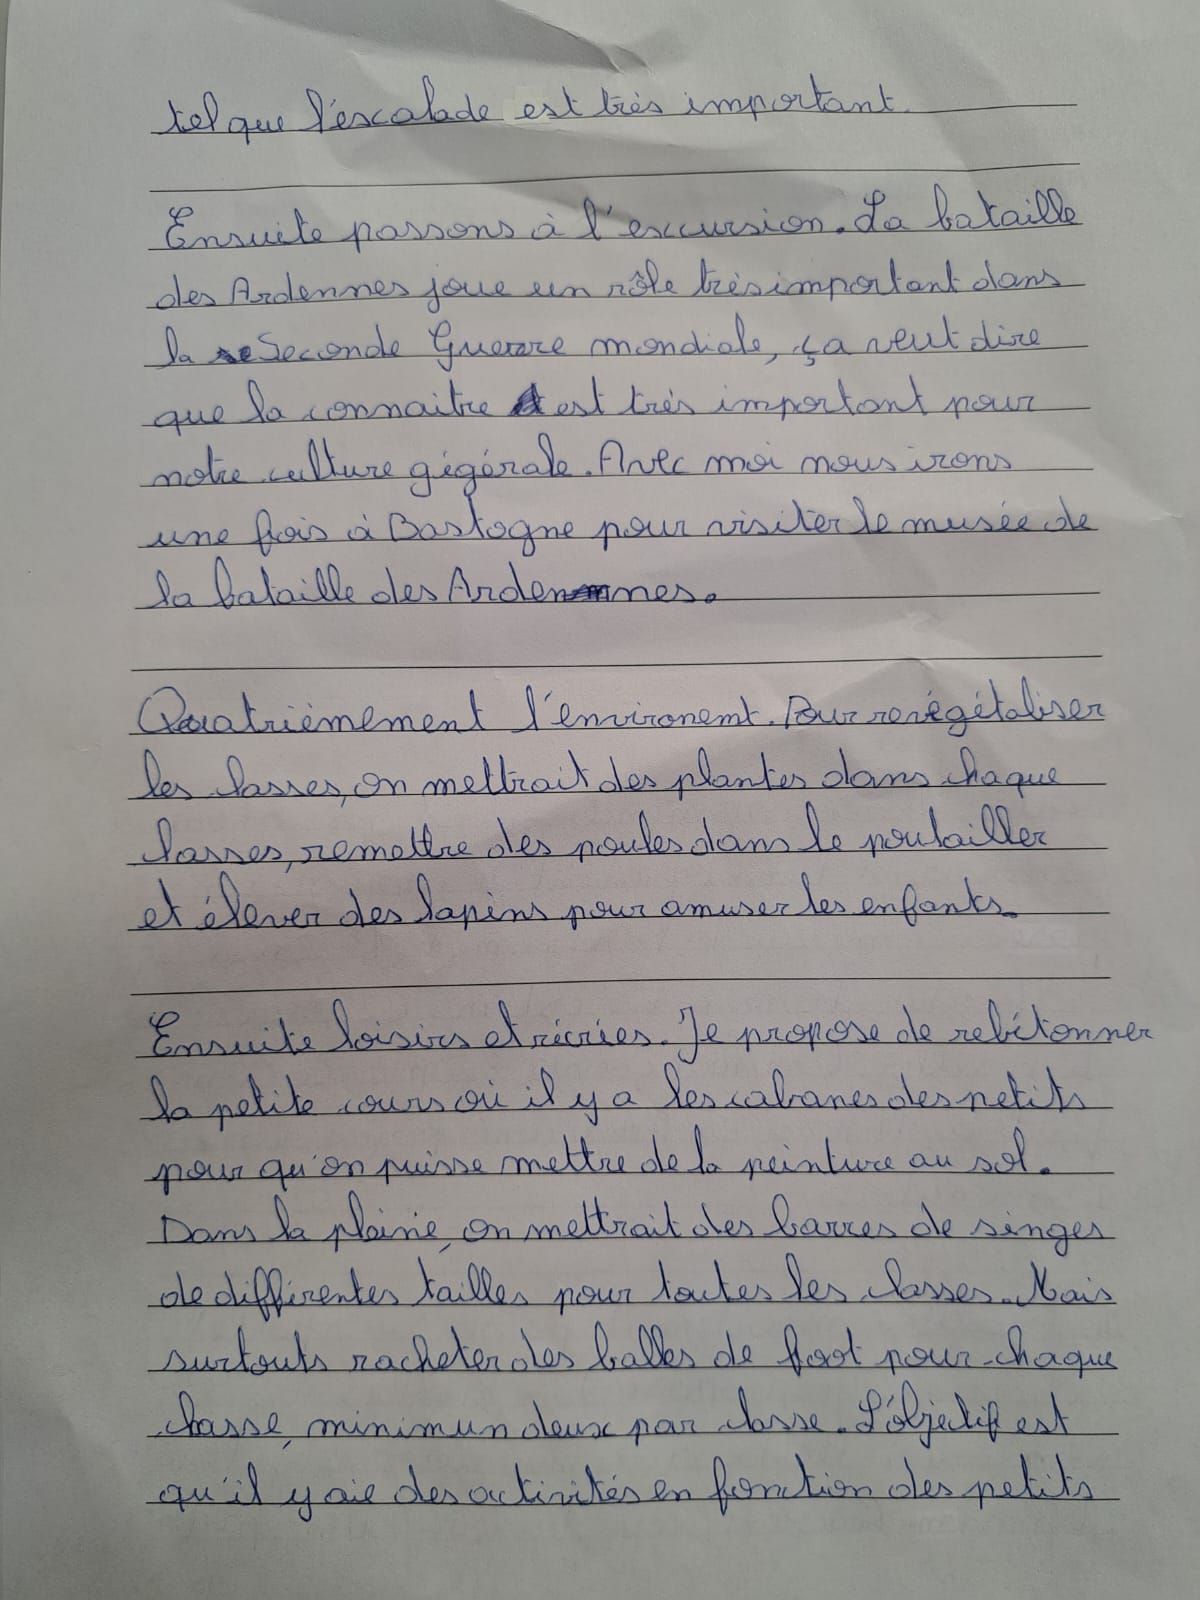 tel que l'escalade est très important.
Ensuite passons à l'excursion. La bataille
des Ardennes joue un rôle très important dans
la Seconde Guerre mondiale, ça veut dire
que la connaitre est très important pour
notre culture gégérale. Avec moi nous irons
une fois à Bastogne pour visiter le musée de
la bataille des Ardennes.
Quatrièmement l'environement. Pour revégétaliser
les classes, on mettrait des plantes dans chaque
classes, remettre des poules dans le poulailler
et élever des lapins pour amuser les enfants.
Ensuite loisirs et récrées. Je propose de rebétonner
la petite cours où il y a les cabanes des petits
pour qu'on puisse mettre de la peinture au sol.
Dans la plaine, on mettrait des barres de singes
de différentes tailles pour toutes les classes. Mais
surtouts racheter des balles de foot pour chaque
classe, minimun deux par classe. L'objectif est
qu'il y aie des activités en fonction des petits